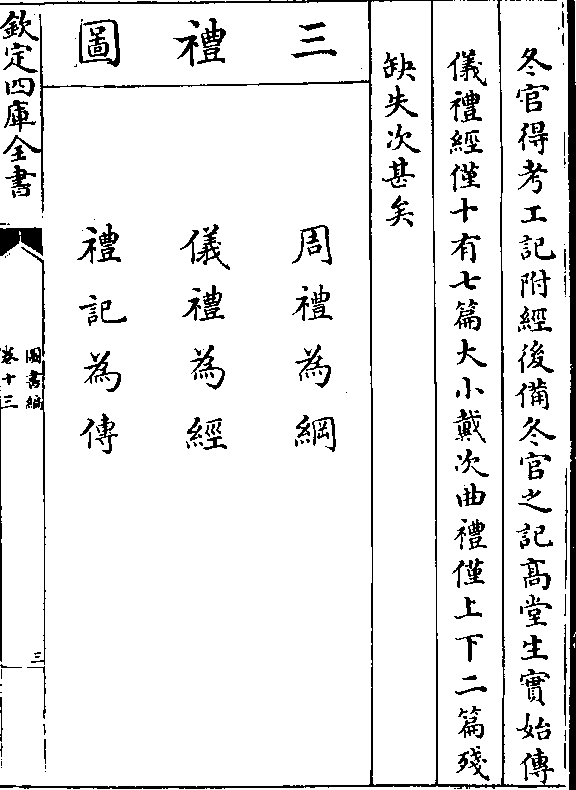 冬官得考工記附經後備冬官之記髙堂生實始傳
儀禮經僅十有七篇大小戴次曲禮僅上下二篇殘
缺失次甚矣
三禮圖
周禮為綱
儀禮為經
禮記為傳
欽定四庫全書
圖書編
卷十三
三